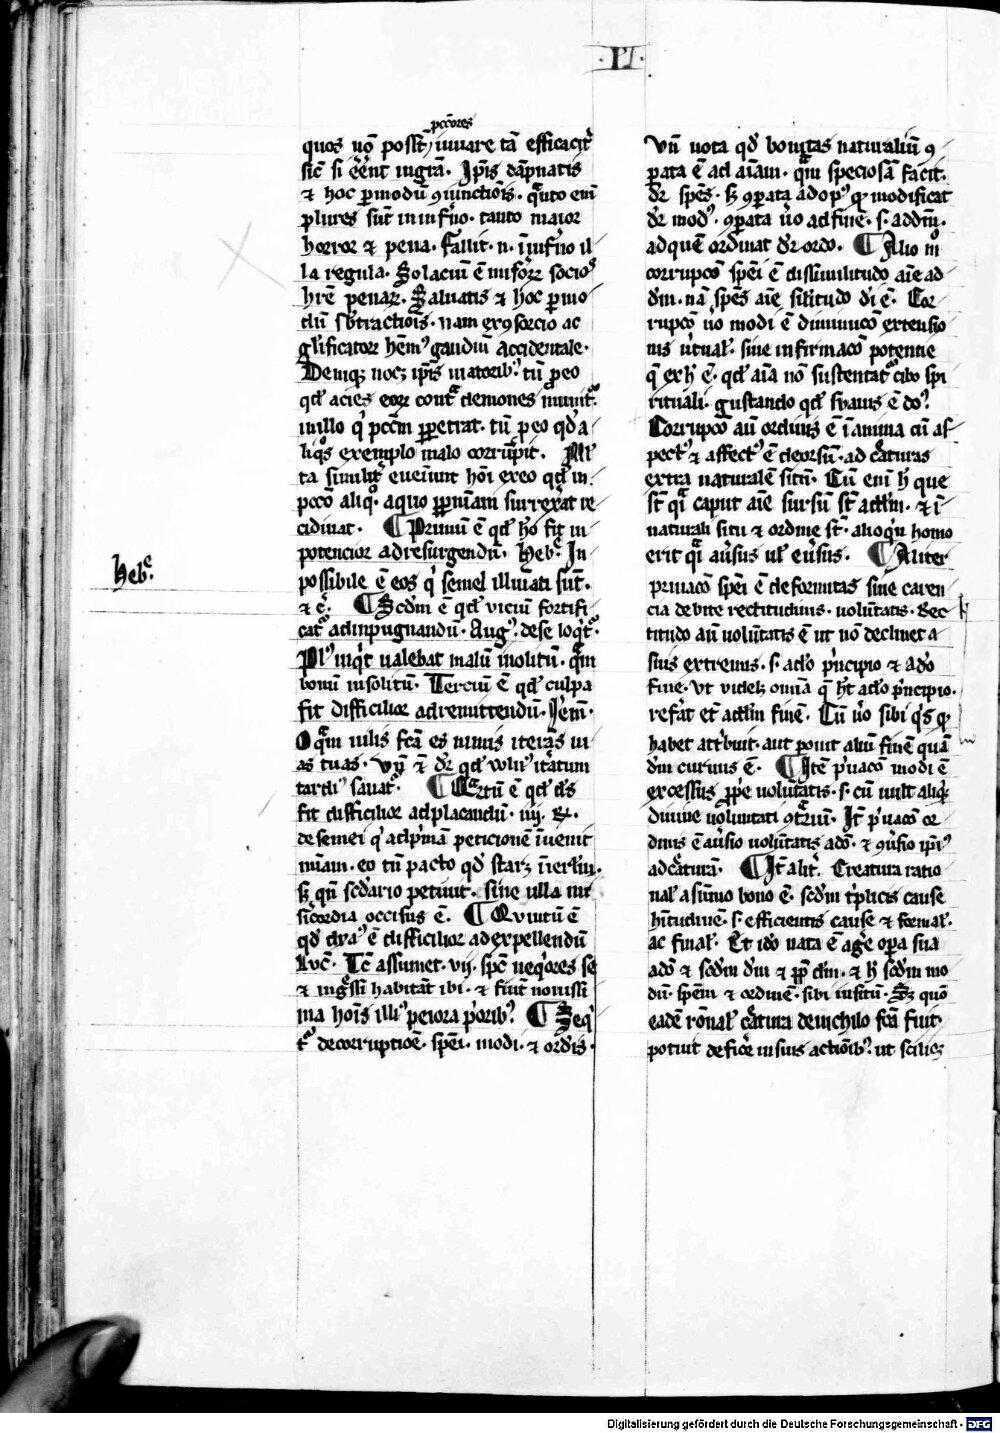 ·VI·
pcc̄ores
quos nō poss̄t iuuare tā efficacit̾
sic̄ si eēnt in gr̄a. Ip̄is dāpnatis
⁊ hoc ꝑ modū ꝯiunctiōis. qᷓnto eni
plures sūt in inf̾no. tanto maior
horror ⁊ pena. Fallit .n. ī inf̾no il
la regula. Solaciū ē mis̾oꝝ socios
hr̄e penaꝝ. Saluatis ⁊ hoc ꝑ mo
dū sb̾tractiōis. nam ex ꝯsorcio ac
gl̾ificatoꝝ hēmꝰ gaudiū accidentale.
Deniqꝫ nocꝫ ip̄is uiatoribꝰ. tū ꝑ eo
qd̾ acies eoꝝ contᷓ demones minuit᷑.
in illo qͥ pcc̄m ꝑpetrat. tū ꝑ eo qd̾ a
liqͦs exemplo malo corrūpit. Ml̾
ta similit̾ eueniunt hōi ex eo qd̾ in
pcc̄o aliqͦ. a quo ꝑ pnīam surrex̾at re
cidiuat. ¶ Primū ē qd̾ hō fit in
potencior ad resurgendū. Heb̾. In
possibile ē eos qͥ semel illuīati sūt.
⁊ c̾. ¶ Scd̾m ē qd̾ viciū fortifi
cat᷑ ad inpugnandū. Augꝰ. de se loqͥt᷑.
Plꝰ inqͥt ualebat malū inolitū. qᷓm
bonū insolitū. Terciū ē qd̾ culpa
fit difficilior ad remittendū. Jēm.
O qᷓm uilis fc̄a es nimis iterās ui
as tuas. Vn̄ ⁊ dr̄ qd̾ wlnꝰ itatum
tardiꝰ sanat᷑. ¶ Qᷓrtū ē qd̾ dꝰs
fit difficilior ad placandū. iij. R.
de semei qͥ ad pͥmā peticionē īuenit
mīam. eo tū pacto qd̾ staret ī ierl̾m.
sꝫ qn̄ scd̾ario petiuit. sine ulla mi
sic̾ordia occisus ē. ¶ Qvintū ē
qd̾ dyaꝰ ē difficilior ad expellendū
Luc̄. Tc̄ assumet. vij. spc̄ neqͥores se
⁊ ingᷓssi habitāt ibi. ⁊ fiūt nouissi
ma hoīs illiꝰ peiora pͥoribꝰ. ¶ Seqͥ
t᷑ de corruptiōe. spēi. modi. ⁊ ordīs.
Vn̄ nota qd̾ bonitas naturaliū ꝯ
parata ē ad aīam. qᷓm speciosā facit.
dr̄ spēs. sꝫ ꝯparata ad opꝰ qͦ modificat
dr̄ modꝰ. ꝯparata u̾o ad finē. s. ad dm̄.
ad quē ordinat dr̄ ordo. ¶ Alio mͦ
corrupcō spēi ē dissimilitudo aīe ad
dm̄. nā spēs aīe sil̾itudo di ē. Cor
rupcō u̾o modi ē diminucō extensio
nis u̾tualꝭ. siue infirmacō potentie
q̄ ex hͦ ē. qd̾ aīa nō sustentat᷑ cibo spi
rituali. gustando qd̾ suauis ē doꝰ.
Corrupcō aū ordinis ē ī anima cū af
fectꝰ ⁊ affectꝰ ē deorsū. ad c̾aturas
extra naturalē sitū. Cū eni h̾ que
st̄ qᷓi caput aīe sursū st̄ ad dm̄. ⁊ ī
naturali situ ⁊ ordine st̄. alioqͥn homo
erit qᷓi au̾sus ul̾ eu̾sus. ¶ Aliter
priuacō spēi ē deformitas siue caren
cia debite rectitudinis. uolūtatis. Rec
titudo aū uolūtatis ē ut nō declinet a
suis extremis. s. a do pͥncipio ⁊ a do
fine. vt uidelꝫ omīa q̄ ht̄ a do pͥncipio.
ref̾at et̄ ad dm̄ finē. Cū u̾o sibi qͥs qͦ
habet att̾buit. aut ponit aliū finē quā
dm̄ curuus ē. ¶ Itē pͥuacō modi ē
excessus ꝓpͥe uolūtatis. s. cū uult aliqͥd
diuine uolūtati ꝯtᷓriū. It̄ pͥuacō or
dinis ē au̾sio uolūtatis a dō. ⁊ ꝯu̾sio ip̄iꝰ
ad c̾aturā. ¶ It̄ alit̾. Creatura ratio
nalꝭ a sūmo bono ē. scd̾m tͥplicis cause
hītudinē. s. efficientis cause ⁊ formalꝭ.
ac finalꝭ. Et ido nata ē agē opera sua
a dō ⁊ scd̾m dm̄ ⁊ ꝓpt̾ dm̄. ⁊ h̾ scd̾m mo
dū. spēm ⁊ ordinē. sibi insitū. Sꝫ quō
eadē rōnalꝭ c̾atura de nichilo fc̄a fuit.
potuit defic̾e in suis actiōibꝰ. ut scilicꝫ
Heb̾.